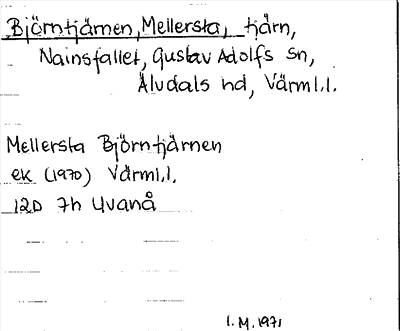 Björntjärnen, Mellersta, tjärn,
Nainsfallet, Gustav Adolfs sn,
Älvdals hd, Värml.l.
Mellersta Björntjärnen
ek (1970) Värml.l.
12D 7h Uvanå
I.M. 1971